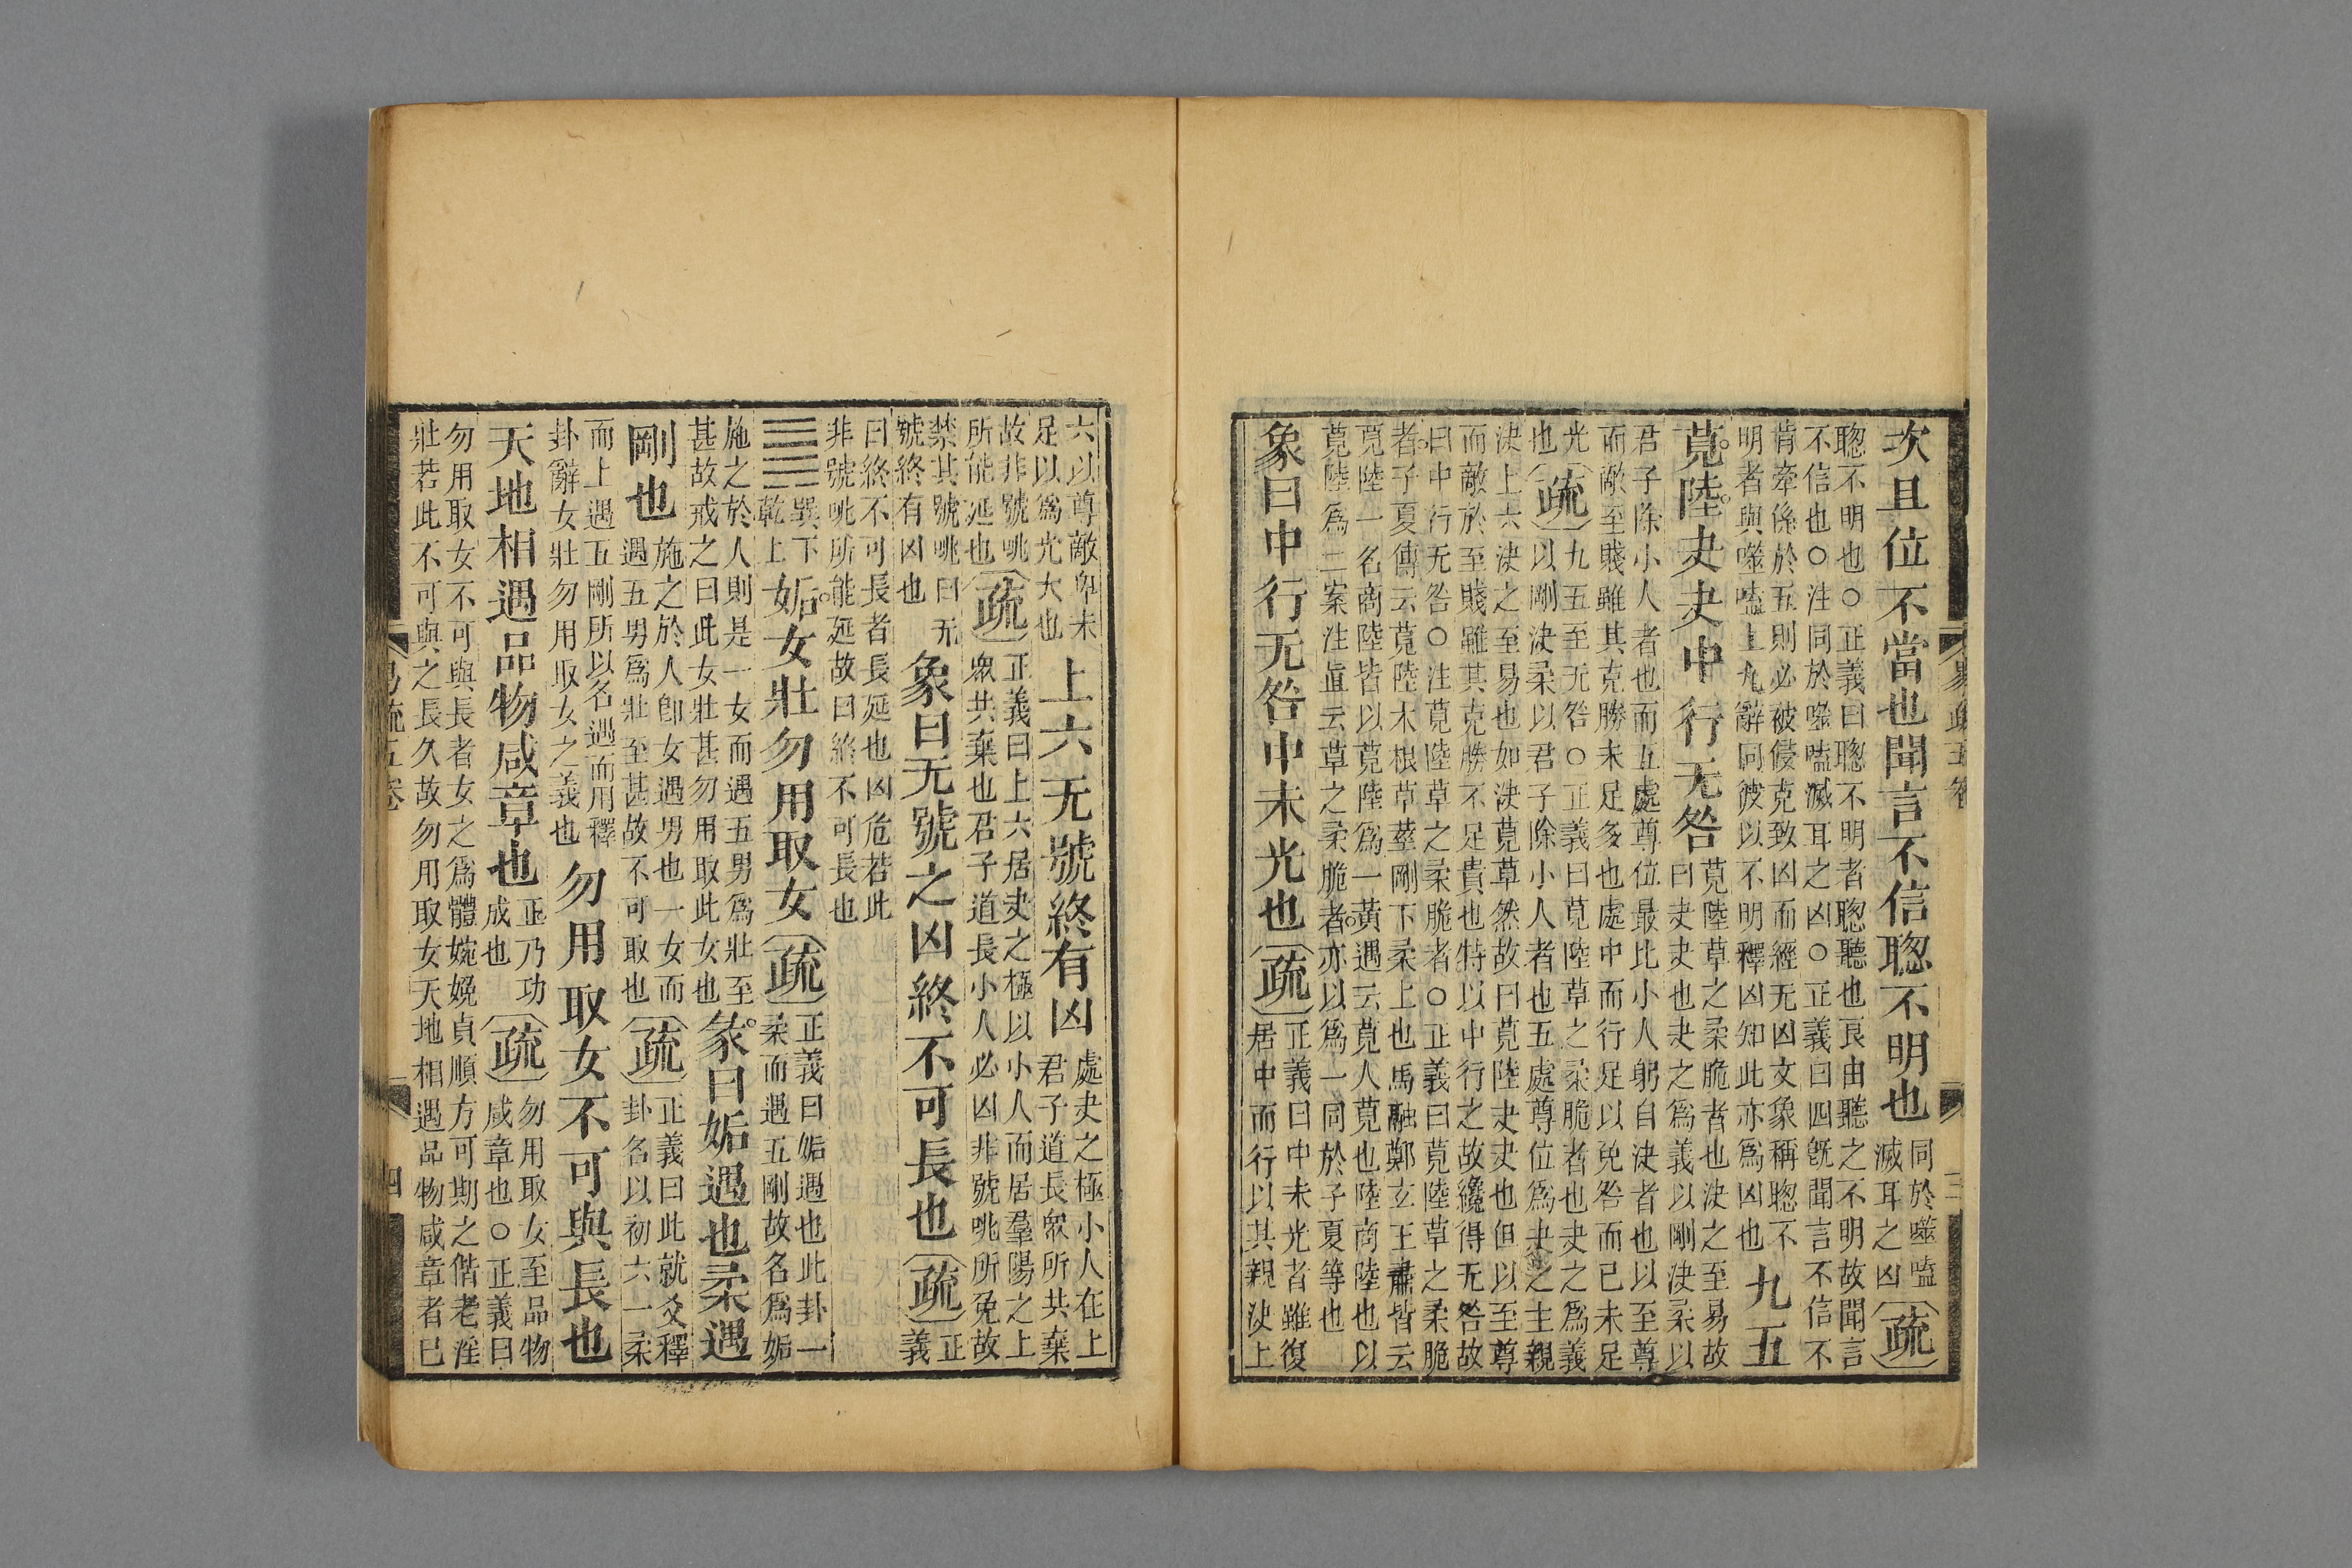 易疏五卷 三
次且位不當也聞言不信聦不明也同於噬嗑滅耳之凶疏
聦不明也○正義曰聦不明者聦聽也良由聽之不明故聞言
不信也○注同於噬嗑滅耳之凶○正義曰四旣聞言不信不
肯牽係於五則必被侵克致凶而經无凶文象稱聦不
明者與噬嗑上九辭同彼以不明釋凶知此亦爲凶也九五
莧陸夬夬中行无咎莧陸草之柔脆者也決之至易故
曰夬夬也夬之爲義以剛決柔以
君子除小人者也而五處尊位最比小人躬自決者也以至尊
而敵至賤雖其克勝未足多也處中而行足以免咎而已未足
光也疏九五至无咎○正義曰莧陸草之柔脆者也夬之爲義
以剛決柔以君子除小人者也五處尊位爲夬之主親
決上六決之至易也如決莧草然故曰莧陸夬夬也但以至尊
而敵於至賤雖其克勝不足貴也特以中行之故纔得无咎故
曰中行无咎○注莧陸草之柔脆者○正義曰莧陸草之柔脆
者子夏傳云莧陸木根草莖剛下柔上也馬融鄭玄王肅皆云
莧陸一名商陸皆以莧陸爲一黃遇云莧人莧也陸商陸也以
莧陸爲二案注直云草之柔脆者亦以爲一同於子夏等也
象曰中行无咎中未光也疏正義曰中未光者雖復
居中而行以其親決上
六以尊敵卑未足以爲光大也上六无號終有凶處夬之極小人在上
君子道長衆所共棄
故非號咷所能延也疏正義曰上六居夬之極以小人而居羣陽之上
衆共棄也君子道長小人必凶非號咷所免故
禁其號咷曰无號終有凶也象曰无號之凶終不可長也疏正義
曰終不可長者長延也凶危若此
非號咷所能延故曰終不可長也
䷫巽下乾上姤女壯勿用取女疏正義曰姤遇也此卦一
柔而遇五剛故名爲姤
施之於人則是一女而遇五男爲壯至
甚故戒之曰此女壯甚勿用取此女也彖曰姤遇也柔遇
剛也施之於人卽女遇男也一女而
遇五男爲壯至甚故不可取也疏正義曰此就爻釋
卦名以初六一柔
而上遇五剛所以名遇而用釋
卦辭女壯勿用取女之義也勿用取女不可與長也
天地相遇品物咸章也正乃功成也疏勿用取女至品物
咸章也○正義曰
勿用取女不可與長者女之爲體婉娩貞順方可期之偕老淫
壯若此不可與之長久故勿用取女天地相遇品物咸章者已
易疏五卷 四